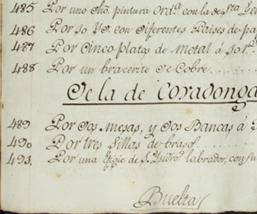 485 Por uno Dho. pintura Ordª. con la de Sta
486 Por 10 Ys. con Diferentes Paises de pa
487 Por Cinco platos de Metal á 10 rs.
488 Por un bracerito de Cobre
De la de Coradonga
489 Por Dos Mesas, y Dos Bancas á
490 Por tres Sillas de brazo
491. Por una Efigie de S. Ysidro labrador, con su
Buelta